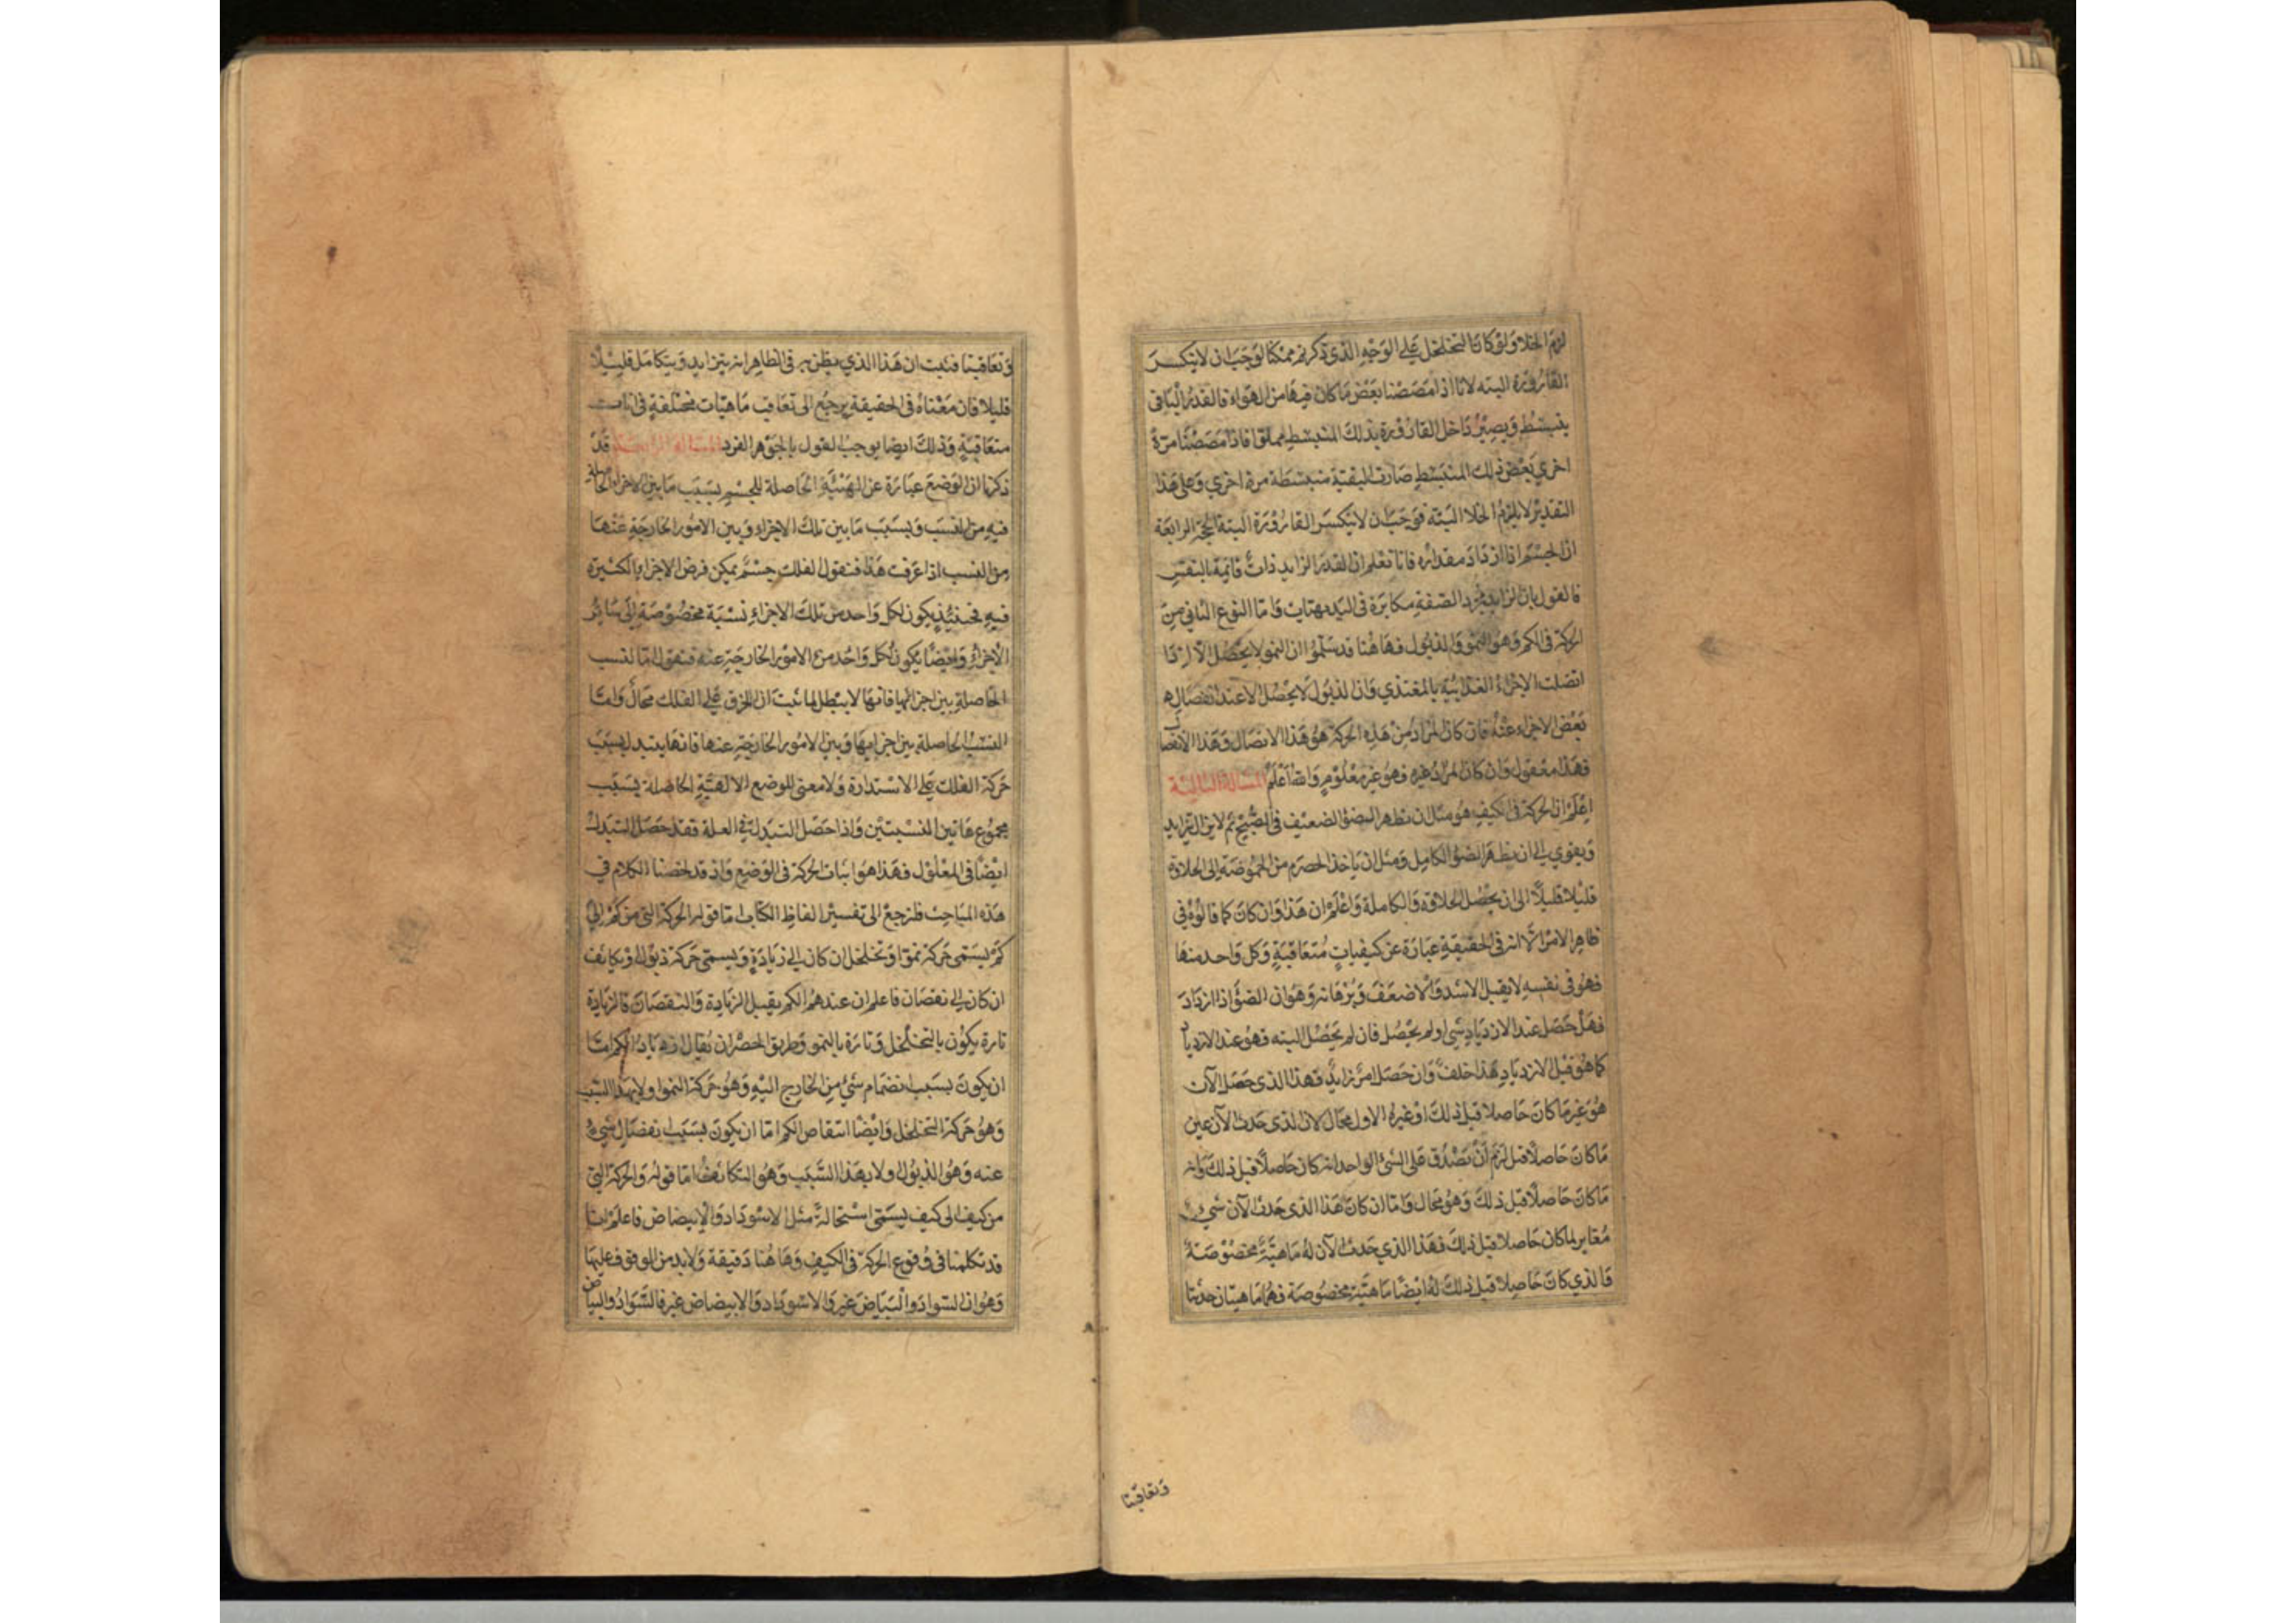 لزم الخلا ولو كان التخلخل على الوجه الذي ذكرتم ممكنا لوجب ان لا ينكسر
القارورة البته لانا اذا مصصنا بعض ما كان فيها من الهواء فالقدر الباقي
ينبسط ويصير داخل القارورة بذلك المنبسط مملوا فاذا مصصنا مرة
اخري بعض ذلك المنبسط صارت البقية منبسطة مرة اخري وعلى هذا
التقدير لا يلزم الخلا البته فوجب ان لا ينكسر القارورة البتة الحجة الرابعة
ان الجسم اذا ازداد مقداره فانا نعلم ان القدر الزايد ذات قائمة بالنفس
فالقول بان الزايد مجرد الصفة مكابرة في البديهتات واما النوع الثاني من
الحركة في الكم وهو النمو والذبول فهاهنا قد سلموا ان النمو لا يحصل الا اذا
اتصلت الاجزاء الغذائية بالمغتذي وان الذبول لا يحصل الا عند انفصال
بعض الاجزاء عنه فان كان المراد من هذه الحركة هو هذا الاتصال وهذا الانفصال
فهذا معقول وان كان المراد غيره فهو غير معلوم والله اعلم المسالة الثالثة
اعلم ان الحركة في الكيف هو مثل ان يظهر الضؤ الضعيف في الصبح ثم لا يزال يتزايد
ويقوي الى ان يظهر الضؤ الكامل ومثل ان ياخذ الحصرم من الحموضة الى الحلاوة
قليلا قليلا الى ان يحصل الحلاوة والكاملة واعلم ان هذا وان كان كما قالوه في
ظاهر الامر الا انه في الحقيقة عبارة عن كيفيات متعاقبة وكل واحد منها
فهو في نفسه لا يقبل الاشد والاضعف وبرهانه وهو ان الضؤ اذا ازداد
فهل حصل عند الازدياد شي او لم يحصل فان لم يحصل البته فهو عند الازدياد
كما هو قبل الازدياد هذا خلف وان حصل امر زايد فهذا الذي حصل الآن
هو غير ما كان حاصلا قبل ذلك او غيره الاول محال لان الذي حدث الآن عين
ما كان حاصلا قبل لزم أن يصدق على الشئ الواحد انه كان حاصلا قبل ذلك وانه
ما كان حاصلا قبل ذلك وهو محال واما ان كان هذا الذي حدث الآن شئ
مغاير لما كان حاصلا قبل ذلك فهذا الذي حدث الآن له ماهية مخصوصة
فالذي كان حاصلا قبل ذلك له ايضا ماهية مخصوصة فهما ماهيتان حدثتا
وتعاقبتا
وتعاقبتا فثبت ان هذا الذي يظن به في الظاهر انه يتزايد ويتكامل قليلا
قليلا فان معناه في الحقيقة يرجع الى تعاقب ماهيات مختلفة في انات
متعاقبة وذلك ايضا يوجب القول بالجوهر الفرد المسالة الرابعة قد
ذكرنا ان الوضع عبارة عن الهيئة الحاصلة للجسم بسبب ما بين الاجزاء الحاصلة
فيه من النسب وبسبب ما بين تلك الاجزاء وبين الامور الخارجة عنها
من النسب اذا عرفت هذا فنقول الفلك جسم يمكن فرض الاجزاء الكثيرة
فيه فحينئذ يكون لكل واحد من تلك الاجزاء نسبة مخصوصة الى سائر
الاجزاء وايضا يكون لكل واحد من الامور الخارجة عنه فنقول اما النسب
الحاصلة بين اجزائها فانها لا يبطل لما ثبت ان الخرق على الفلك محال واما
النسب الحاصلة بين اجزايها وبين الامور الخارجة عنها فانها يتبدل بسبب
حركة الفلك على الاستدارة ولا معنى للوضع الا الهيئة الحاصلة بسبب
مجموع هاتين النسبتين واذا حصل التبدل في العلة فقد حصل التبدل
ايضا في المعلول فهذا هو اثبات الحركة في الوضع واذ قد لخصنا الكلام في
هذه المباحث فلنرجع الى تفسير الفاظ الكتاب اما قوله الحركة التي من كم الى
كم يسمى حركة نمو او تخلخل ان كان الى زيادة ويسمى حركة ذبول او تكاثف
ان كان الى نقصان فاعلم ان عندهم الكم يقبل الزيادة والنقصان فالزيادة
تارة يكون بالتخلخل وتارة بالنمو وطريق الحصر ان يقال ازدياد الكم اما
ان يكون بسبب انضمام شئ من الخارج اليه وهو حركة النمو او لا بهذا السبب
وهو حركة التخلخل وايضا انتقاص الكم اما ان يكون بسبب انفصال شئ
عنه وهو الذبول او لا بهذا السبب وهو التكاثف اما قوله والحركة التي
من كيف الى كيف يسمى استحالة مثل الاسوداد والابيضاض فاعلم انا
قد تكلمنا في وقوع الحركة في الكيف وهاهنا دقيقة ولا بد من الوقوف عليها
وهو ان السواد والبياض غير والاسوداد والابيضاض غير فالسواد والبياض